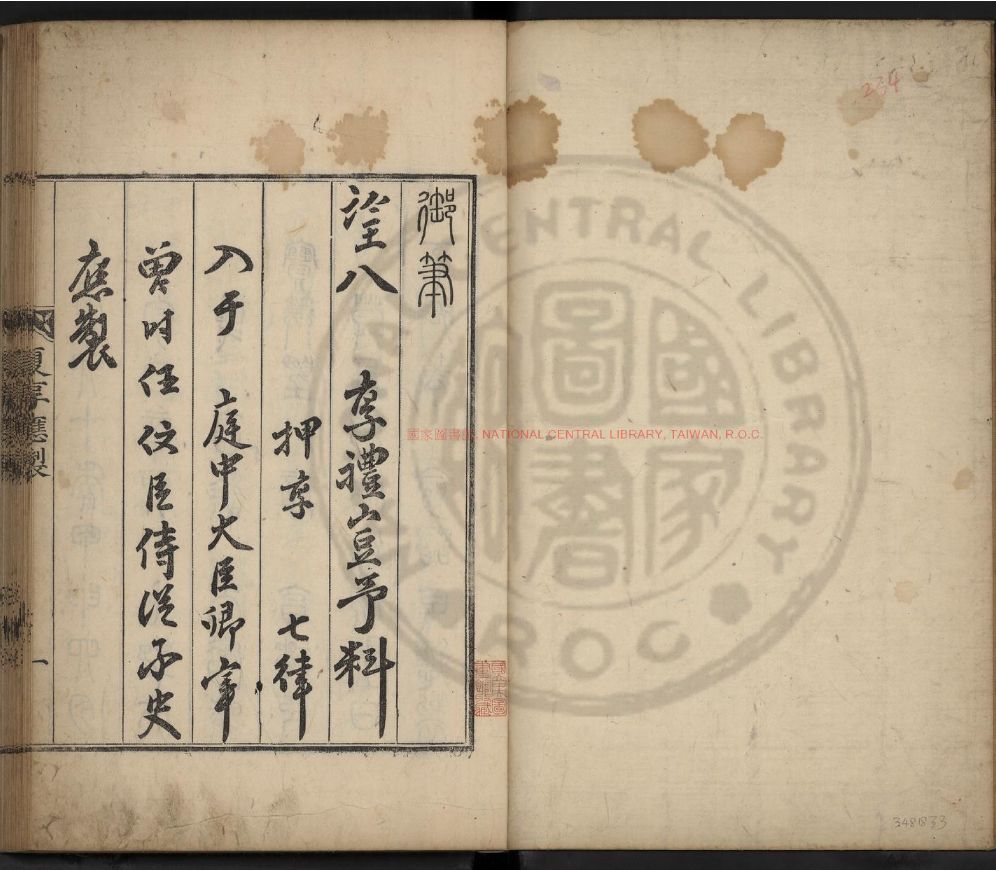 御筆
望八　享禮豈予料
押享　七律
入于　庭中大臣卿宰
曾時任　臣侍從承史
應製
夏享應製
一
國家圖書館 NATIONAL CENTRAL LIBRARY, TAIWAN, R.O.C.
CENTRAL LIBRARY
ROC
國家圖書
234
348833